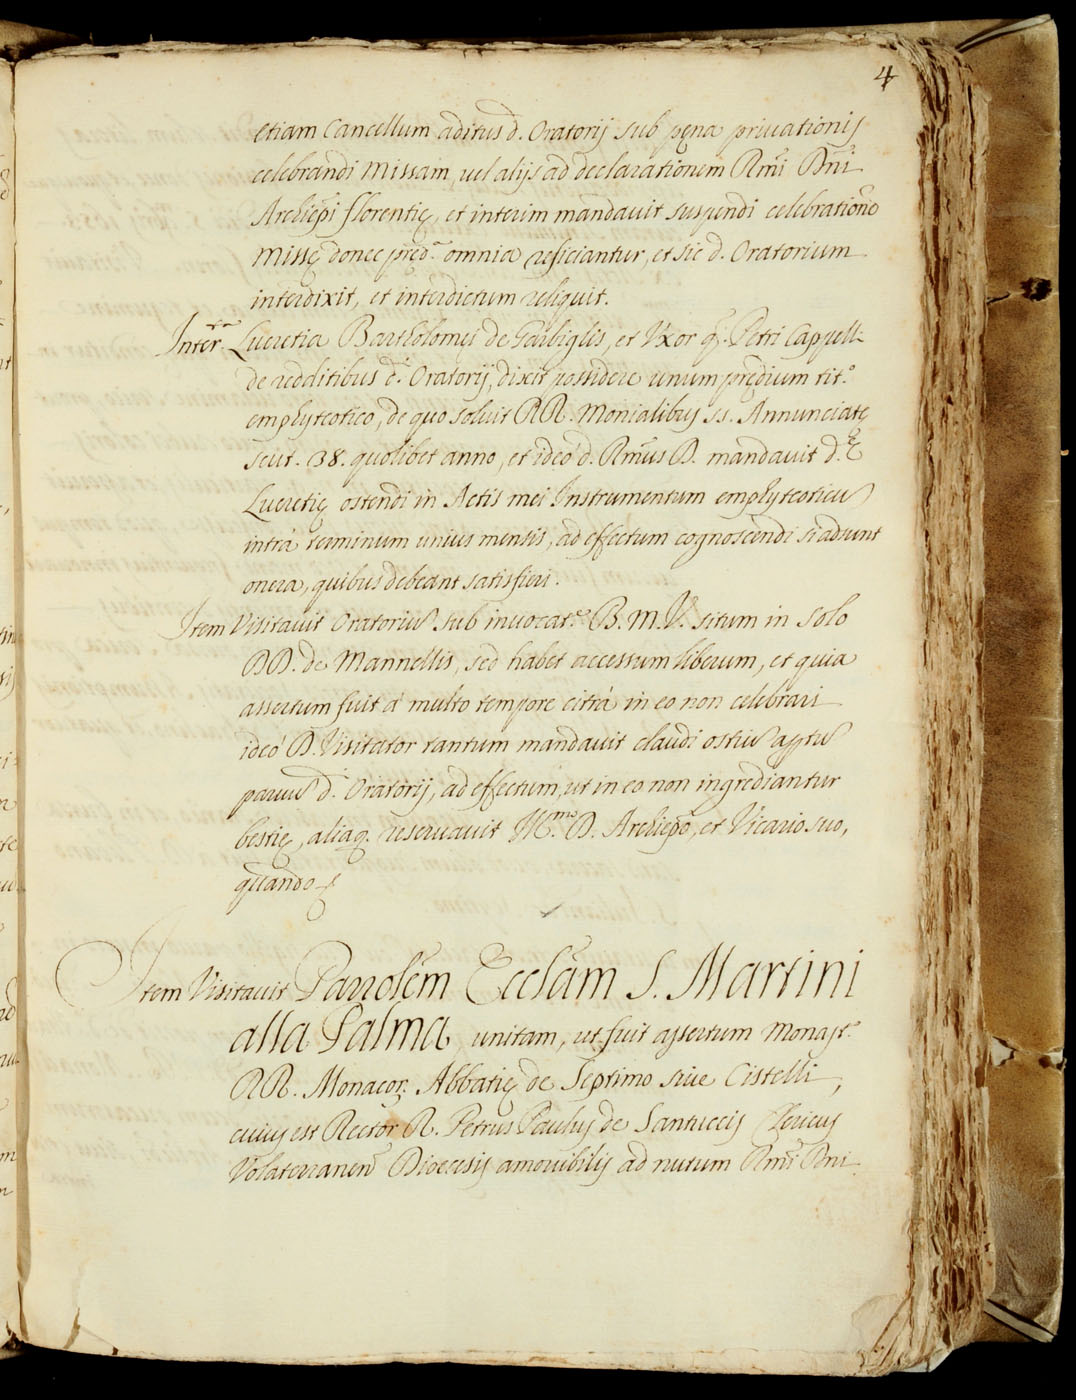 4
etiam Cancellum aditus d. Oratorij sub pęna priuationis
celebrandi Missam, uel alijs ad declarationem Rmi Dni
Archiepi florentię, et interim mandauit suspendi celebratione
Missę donec pręd.ª omnia reficiantur, et sic d. Oratorium
interdixit, et interdictum reliquit.
Lucretia Bartholomęi de Garbiglis, et Vxor q. Petri Cappelli
de redditibus d. Oratorij, dixit possidere unum prędium tit.º
emphyteotico, de quo soluit RR. Monialibus ss. Annunciatę
scut. 138. quolibet anno, et ideò d. Rmus D. mandauit d.ę
Lucretię ostendi in Actis mei Instrumentum emphyteoticu
intrà terminum unius mensis, ad effectum cognoscendi si adsunt
onera, quibus debeant satisfieri.
Item Visitauit Oratoriu sub inuocat.e B. M. V. situm in solo
DD. de Mannellis, sed habet accessum liberum, et quia
assertum fuit à multo tempore citrà in eo non celebrari
ideò D. Visitator tantum mandauit claudi ostiu aptu
paruu d. Oratorij, ad effectum, ut in eo non ingrediantur
bestię, aliaq. reseruauit Ill.mo D. Archiepo, et Vicario suo,
quando
Item Visitauit Parrolem Ecclam S. Martini
alla Palma, unitam, ut fuit assertum Monast.º
RR. Monacor. Abbatię de Septimo siue Cistelli,
cuius est Rector R. Petrus Paulus de Santuccis Clericus
Volaterranen Diocesis amouibilis ad nutum Rmi Dni